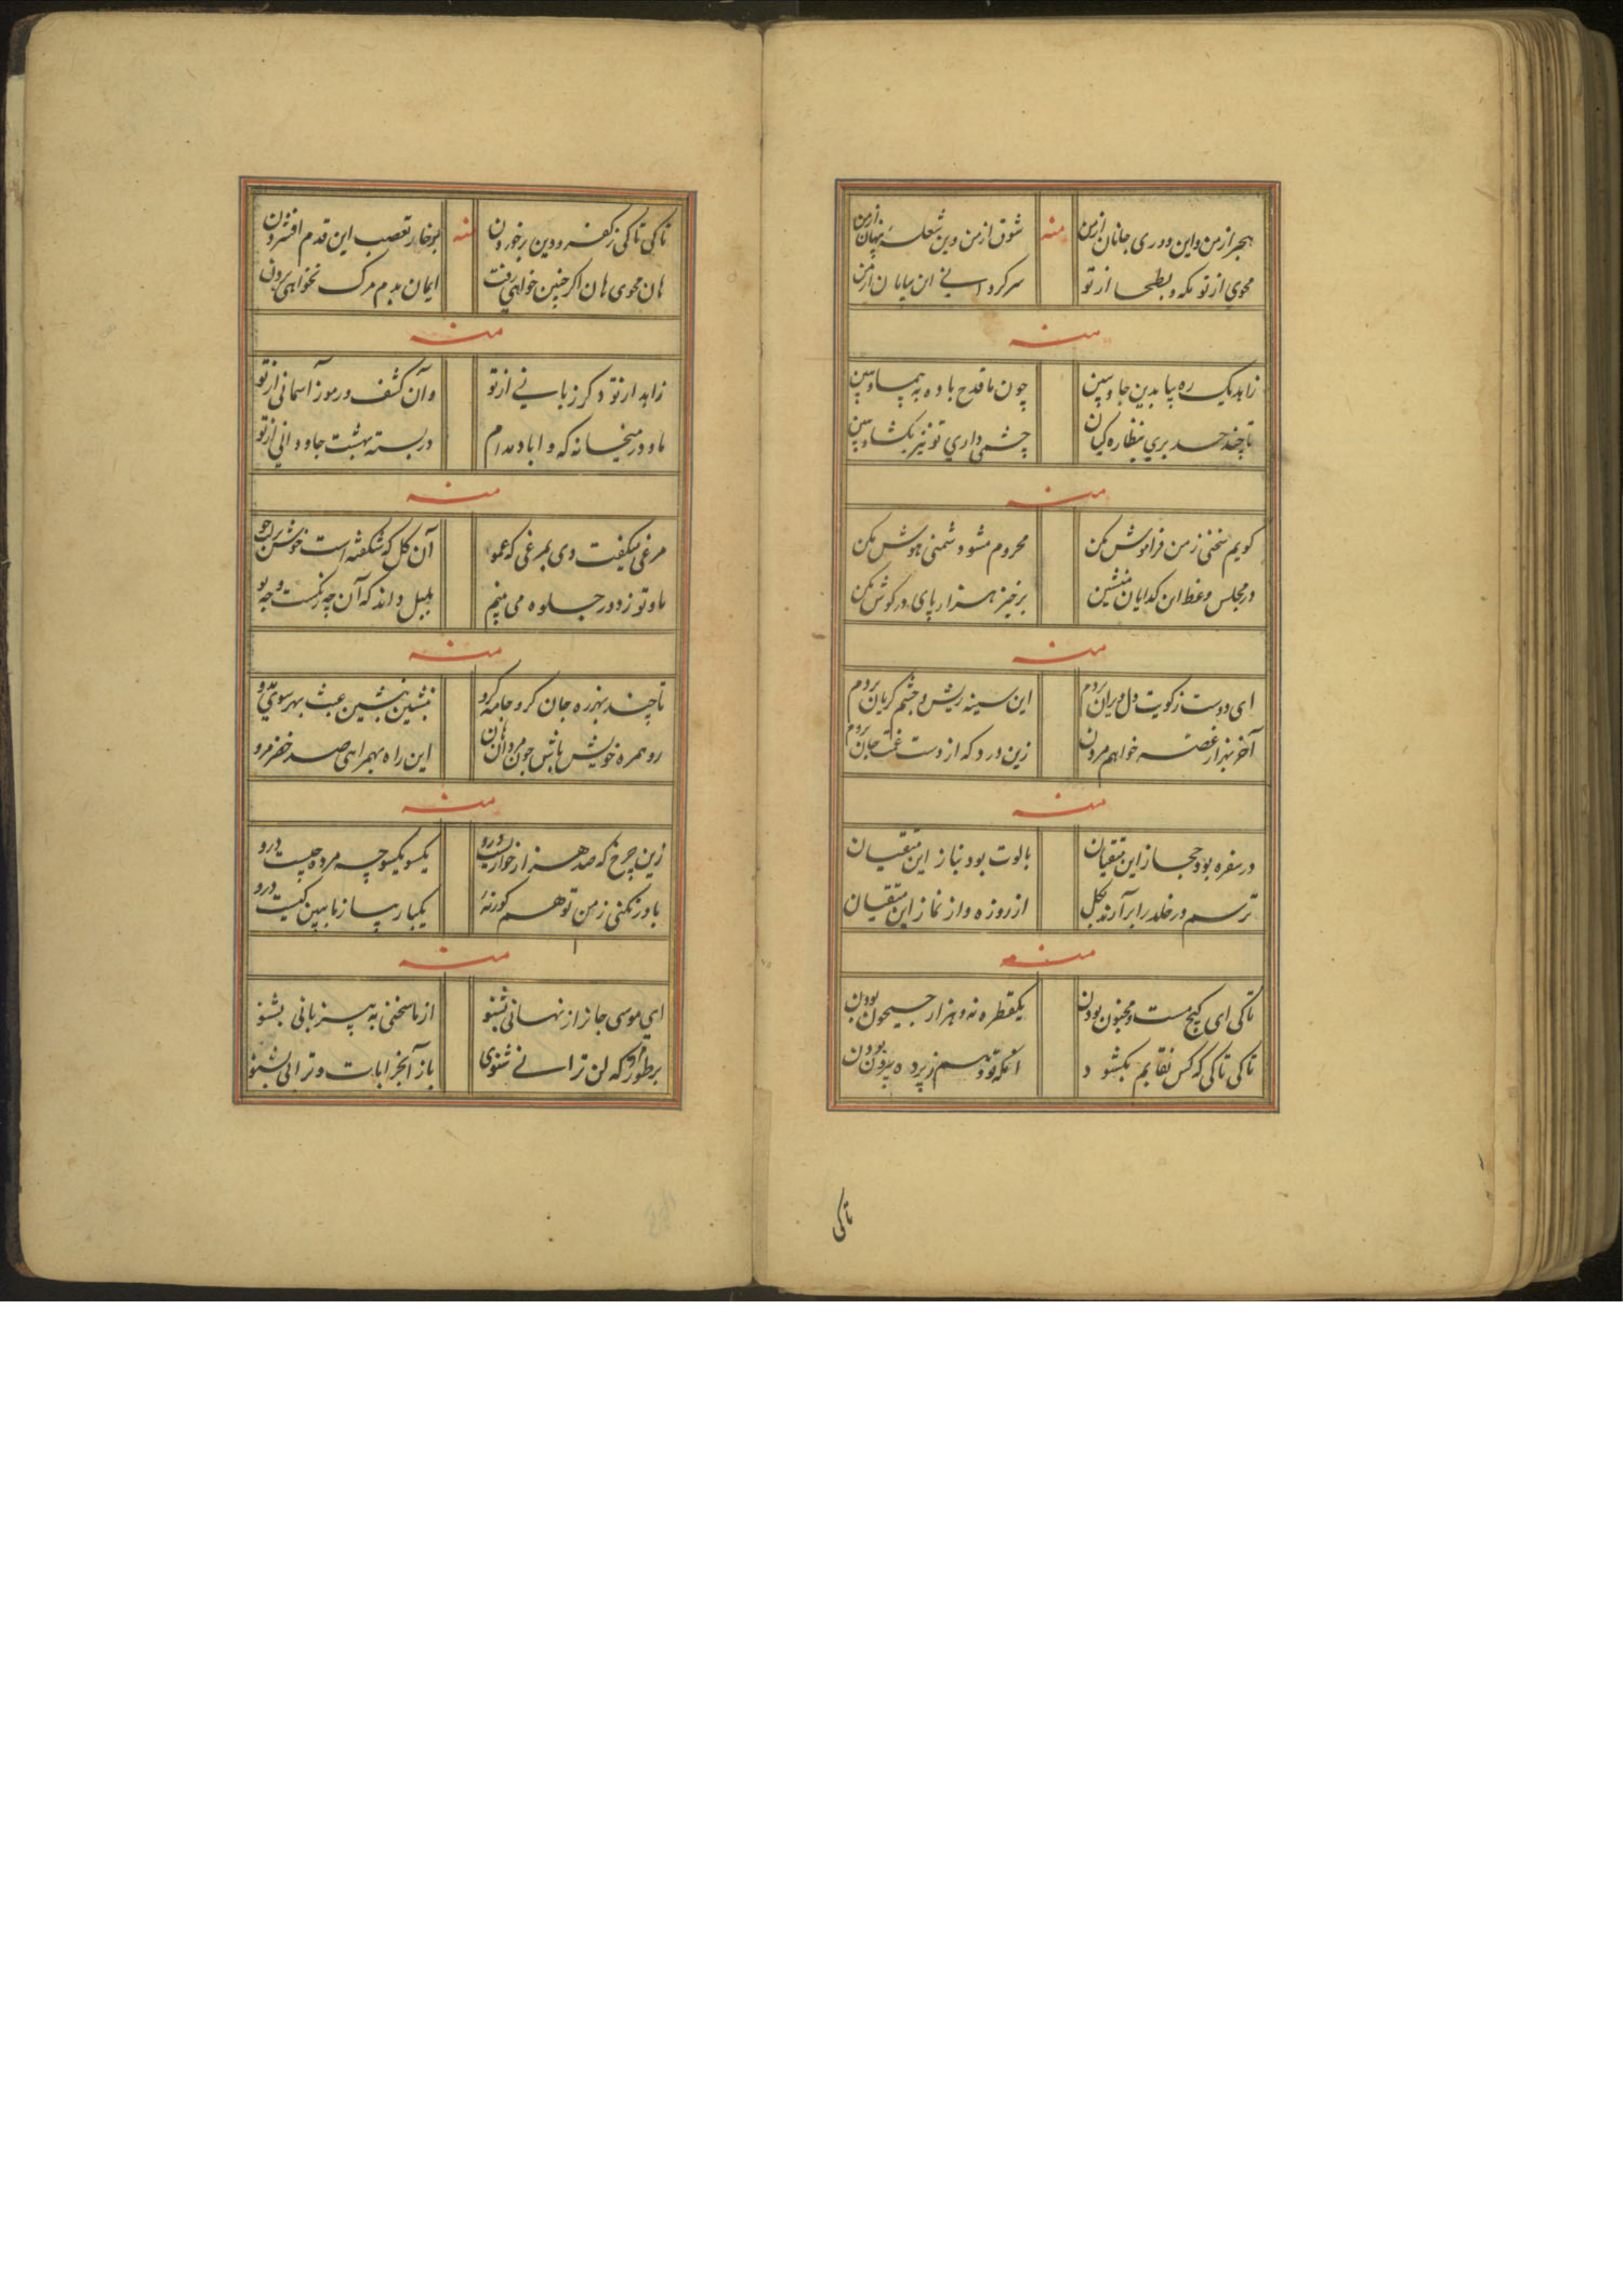 هجر از من و این دوری جانان از من
منه
شوق از من وین شعله پنهان از من
محوی از تو مکه و بطحا از تو
سرکردانی این بیابان از من
منه
زاهد یک ره بیا بدین جا و ببین
چون ما قدح باده به پیما و ببین
تا چند حسد بری بنظاره کیان
چشمی داری تو نیز بکشا و ببین
منه
کویم سخنی ز من فراموش مکن
محروم مشو دشمنی هوش مکن
در مجلس وعظ این کدایان منشین
برخیز هزار پای در کوش مکن
منه
ای دوست ز کویت دل ویران بردم
این سینه ریش و چشم کریان بردم
آخر بهزار غصه خواهم مردن
زین درد که از دست غمت جان بردم
منه
در سفره بود حجاز این متقیان
بالوت بود نیاز این متقیان
ترسم در خلد را برآرند بکل
از روزه و از نماز این متقیان
منه
تا کی ای کیج مست و مجنون بودن
یکقطره نه و هزار جیحون بودن
تا کی تا کی که کس نقابم بکشود
آنکه تو و نیم ز پرده بیرون بودن
تا کی
تا کی تا کی ز کفر و دین برخوردن
منه
بر خار تعصب این قدم افشردن
هان محوی هان اکر چنین خواهی رفت
ایمان بدم مرک نخواهی بردن
منه
زاهد از تو دکر زبانی از تو
وآن کشف و رموز آسمانی از تو
ما و در میخانه که واباد مدام
در بسته بهشت جاودانی از تو
منه
مرغی میکفت دی بمرغی که عمو
آن کل که شکفته است خوش بر لب جو
ما و تو ز دور جلوه می بینیم
بلبل داند که آن چه رنکست و چه بو
منه
تا چند بهرزه جان کرو جامه کرو
بنشین بنشین عبث بهر سوی مدو
رو همره خویش باش چون مردان هان
این راه بهمراهی صد خضر مرو
منه
زین چرخ که صد هزار خواریست درو
یکسو یکسو چه مرده چیست درو
باور نکنی ز من تو هم کور نه
یکبار بیا ز ما ببین کیست درو
منه
ای موسی جان راز نهانی بشنو
از ما سخنی به بیزبانی بشنو
بر طور که لن ترانی شنوی
باز آ بخرابات و ترانی بشنو